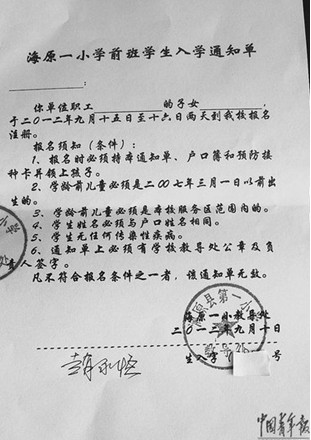 海原一小学前班学生入学通知单
：
你单位职工 的子女 ，
于二〇一二年九月十五日至十六日两天到我校报名
注册。
报名须知（条件）：
1、报名时必须持本通知单、户口簿和预防接
种卡并领上孩子。
2、学龄前儿童必须是二00七年三月一日以前出
生的。
3、学龄前儿童必须是本校服务区范围内的。
4、学生姓名必须与户口姓名相同。
5、学生无任何传染性疾病。
6、通知单上必须有学校教导处公章及负
责人签字。
凡不符合报名条件之一者，该通知单无效。
海原一小教导处
二〇一二年九月十日
生入字 号
中国青年报